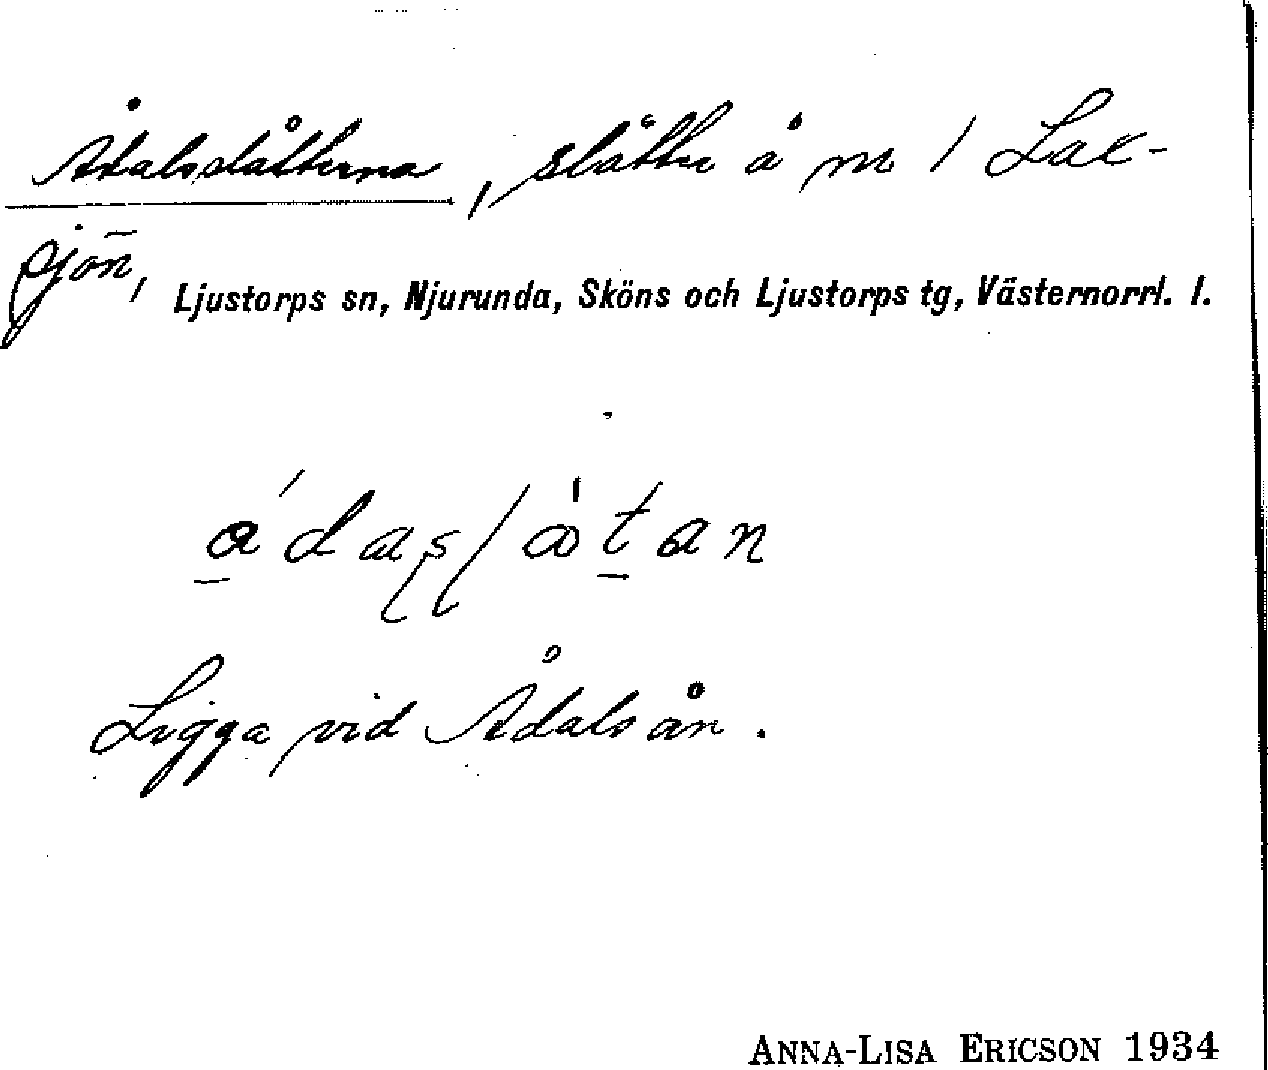 Ådalsslåtterna, slåtter å nr 1 Lax-
sjön, Ljustorps sn, Njurunda, Sköns och Ljustorps tg, Västernorrl. l.
Ligga vid Ådalsån.
ANNA-LISA ERICSON 1934